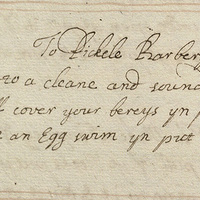 To Pickele Barber
to a cleane and soun
cover your bereys yn p
an Egg swim yn put